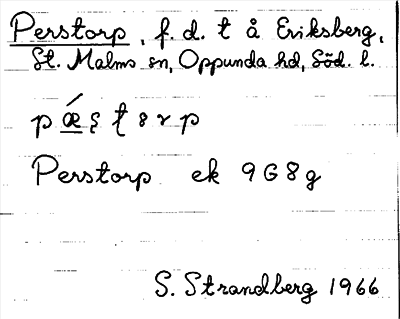 Perstorp, f. d. t å Eriksberg,
St. Malms sn, Oppunda hd, Söd. l.
Perstorp ek 9G8g
S. Strandberg 1966